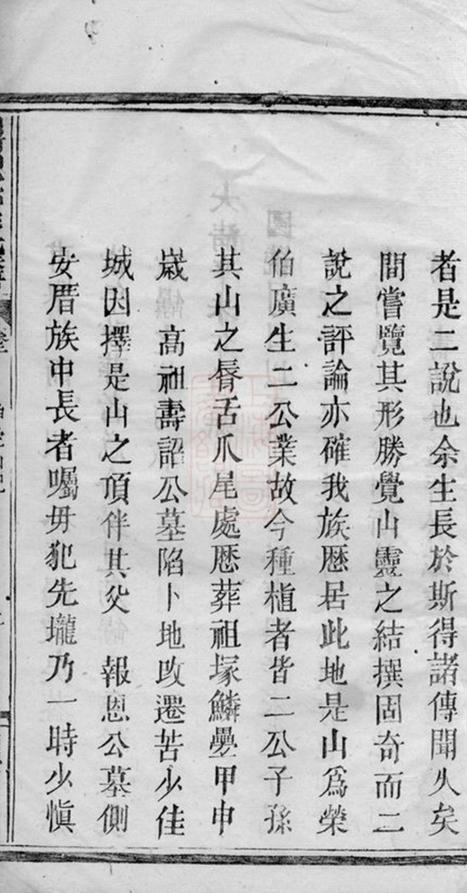 者是二說也余生長於斯得諸傳聞久矣
間嘗覽其形勝覺山靈之結撰固奇而二
說之評論亦確我族歷居此地是山爲榮
伯廣生二公業故今種植者皆二公子孫
其山之脣舌爪尾處歷葬祖塚鱗疊甲申
歲 高祖壽詔公墓陷卜地改遷苦少佳
城因擇是山之頂伴其父 報恩公墓側
安厝族中長者囑毋犯先壠乃一時少慎